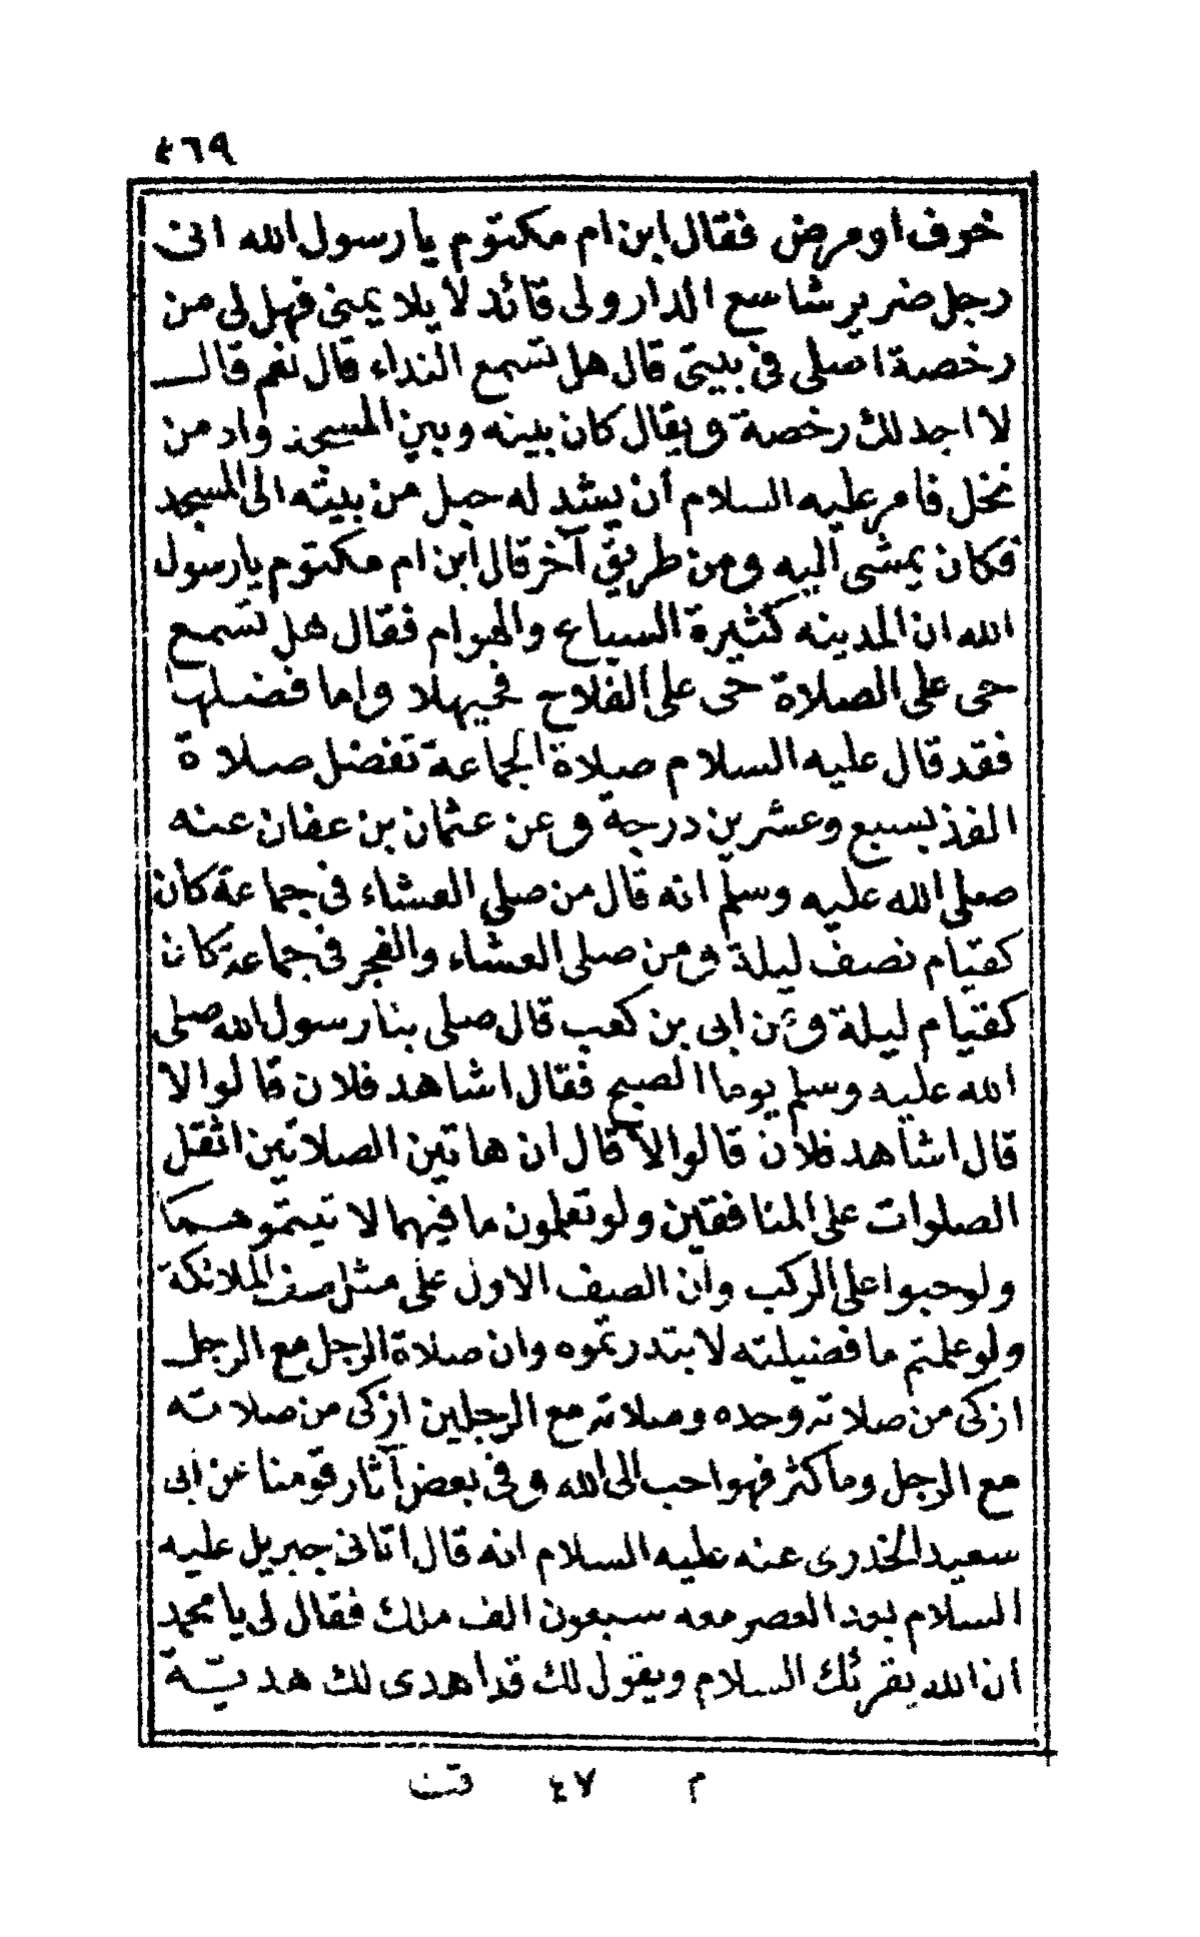 ٤٦٩
خوف أو مرض فقال ابن ام مكتوم يا رسول الله انى
رجل ضرير شاسع الدار ولى قائد لا يلايمنى فهل لى من
رخصة اصلى فى بيتى قال هل تسمع النداء قال نعم قال
لا اجد لك رخصة ويقال كان بينه وبين المسجد واد من
نخل فامر عليه السلام أن يشد له حبل من بيته الى المسجد
فكان يمشى اليه ومن طريق آخر قال ابن ام مكتوم يا رسول
الله ان المدينه كثيرة السباع والهوام فقال هل تسمع
حى على الصلاة حى على الفلاح فحيهلا واما فضلها
فقد قال عليه السلام صلاة الجماعة تفضل صلاة
الفذ بسبع وعشرين درجة وعن عثمان بن عفان عنه
صلى الله عليه وسلم انه قال من صلى العشاء فى جماعة كان
كقيام نصف ليلة ومن صلى العشاء والفجر فى جماعة كان
كقيام ليلة وعن ابى بن كعب قال صلى بنا رسول الله صلى
الله عليه وسلم يوما الصبح فقال اشاهد فلان قالوا لا
قال اشاهد فلان قالوا لا قال ان هاتين الصلاتين اثقل
الصلوات على المنافقين ولو تعلمون ما فيهما لاتيتموهما
ولو حبوا على الركب وان الصف الاول على مثل صف الملائكة
ولو علمتم ما فضيلته لابتدرتموه وان صلاة الرجل مع الرجل
ازكى من صلاته وحده وصلاته مع الرجلين ازكى من صلاته
مع الرجل وما كثر فهو احب الى الله وفى بعض آثار قومنا عن ابى
سعيد الخدرى عنه عليه السلام انه قال اتانى جبريل عليه
السلام بعد العصر معه سبعون الف ملك فقال لى يا محمد
ان الله يقرئك السلام ويقول لك قد اهدى لك هديّة
م ٤٧ قن